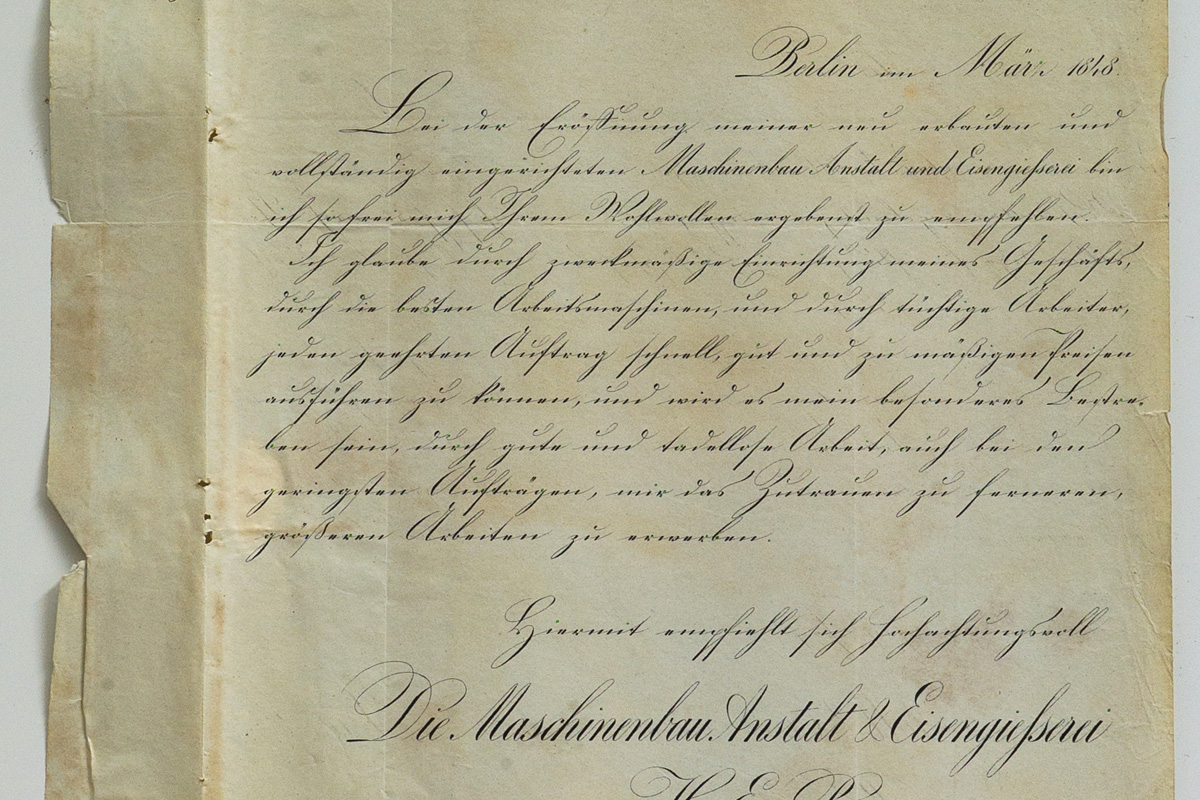 Berlin im März 1848.
Bei der Eröffnung meiner neu erbauten und
vollständig eingerichteten Maschinenbau Anstalt und Eisengießerei bin
ich so frei mich Ihrem Wohlwollen ergebenst zu empfehlen.
Ich glaube durch zweckmäßige Einrichtung meines Geschäfts,
durch die besten Arbeitsmaschinen, und durch tüchtige Arbeiter,
jeden geehrten Auftrag schnell, gut und zu mäßigen Preisen
ausführen zu können, und wird es mein besonderes Bestre-
ben sein, durch gute und tadellose Arbeit, auch bei den
geringsten Aufträgen, mir das Zutrauen zu ferneren,
größeren Arbeiten zu erwerben.
Hiermit empfiehlt sich hochachtungsvoll
Die Maschinenbau Anstalt & Eisengießerei